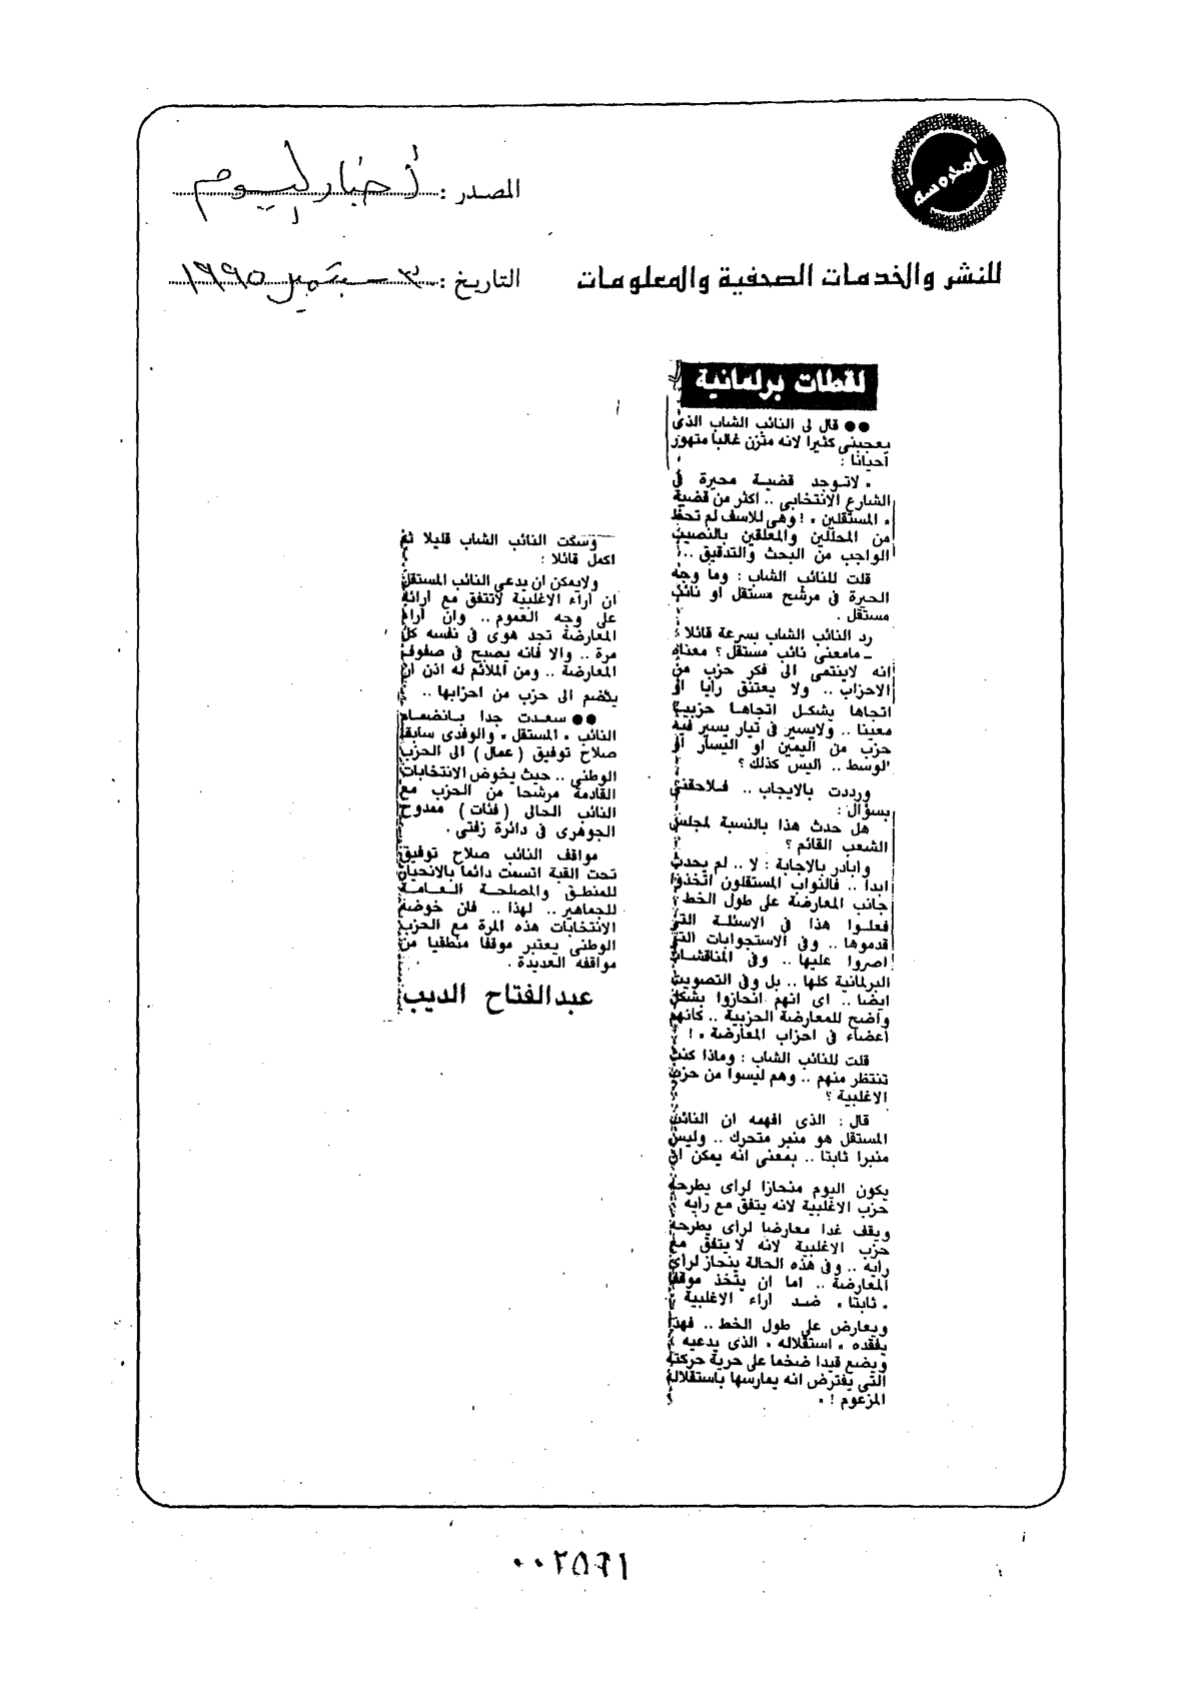 المحروسة
المصدر : أخبار اليوم
للنشر والخدمات الصحفية والمعلومات
التاريخ : ٣ سبتمبر ١٩٩٥
لقطات برلمانية
●● قال لى النائب الشاب الذى
يعجبنى كثيرا لانه متزن غالبا متهور
أحيانا :
• لاتوجد قضية محيرة فى
الشارع الانتخابى .. اكثر من قضية
• المستقلين • ! وهى للاسف لم تحظ
من المحللين والمعلقين بالنصيب
الواجب من البحث والتدقيق ..!
قلت للنائب الشاب : وما وجه
الحيرة فى مرشح مستقل او نائب
مستقل .
رد النائب الشاب بسرعة قائلا :
ـ مامعنى نائب مستقل ؟ معناه
انه لاينتمى الى فكر حزب من
الاحزاب .. ولا يعتنق رايا او
اتجاها يشكل اتجاها حزبيا
معينا .. ولايسير فى تيار يسير فيه
حزب من اليمين او اليسار او
الوسط .. اليس كذلك ؟
ورددت بالايجاب .. فلاحقنى
بسؤال :
هل حدث هذا بالنسبة لمجلس
الشعب القائم ؟
وابادر بالاجابة : لا .. لم يحدث
ابدا .. فالنواب المستقلون اتخذوا
جانب المعارضة على طول الخط ؟
فعلوا هذا فى الاسئلة التى
قدموها .. وفى الاستجوابات التى
اصروا عليها .. وفى المناقشات
البرلمانية كلها .. بل وفى التصويت
ايضا .. اى انهم انحازوا بشكل
واضح للمعارضة الحزبية .. كانهم
أعضاء فى احزاب المعارضة • !
قلت للنائب الشاب : وماذا كنت
تنتظر منهم .. وهم ليسوا من حزب
الاغلبية ؟
قال : الذى افهمه ان النائب
المستقل هو منبر متحرك .. وليس
منبرا ثابتا .. بمعنى انه يمكن ان
يكون اليوم منحازا لراى يطرحه
حزب الاغلبية لانه يتفق مع رايه
ويقف غدا معارضا لراى يطرحه
حزب الاغلبية لانه لا يتفق مع
رايه .. وفى هذه الحالة ينحاز لراى
المعارضة .. اما ان يتخذ موقفا
• ثابتا • ضد اراء الاغلبية
ويعارض على طول الخط .. فهذا
يفقده • استقلاله • الذى يدعيه
ويضع قيدا ضخما على حرية حركته
التى يفترض انه يمارسها باستقلاله
المزعوم ! •
وسكت النائب الشاب قليلا ثم
اكمل قائلا :
ولايمكن ان يدعى النائب المستقل
ان اراء الاغلبية لاتتفق مع ارائه
على وجه العموم .. وان اراء
المعارضة تجد هوى فى نفسه كل
مرة .. والا فانه يصبح فى صفوف
المعارضة .. ومن الملائم له اذن ان
ينضم الى حزب من احزابها ..
●● سعدت جدا بانضمام
النائب • المستقل • والوفدى سابقا
صلاح توفيق ( عمال ) الى الحزب
الوطنى .. حيث يخوض الانتخابات
القادمة مرشحا من الحزب مع
النائب الحالى ( فئات ) ممدوح
الجوهرى فى دائرة زفتى .
مواقف النائب صلاح توفيق
تحت القبة اتسمت دائما بالانحياز
للمنطق والمصلحة العامة
للجماهير .. لهذا .. فان خوضه
الانتخابات هذه المرة مع الحزب
الوطنى يعتبر موقفا منطقيا من
مواقفه العديدة .
عبدالفتاح الديب